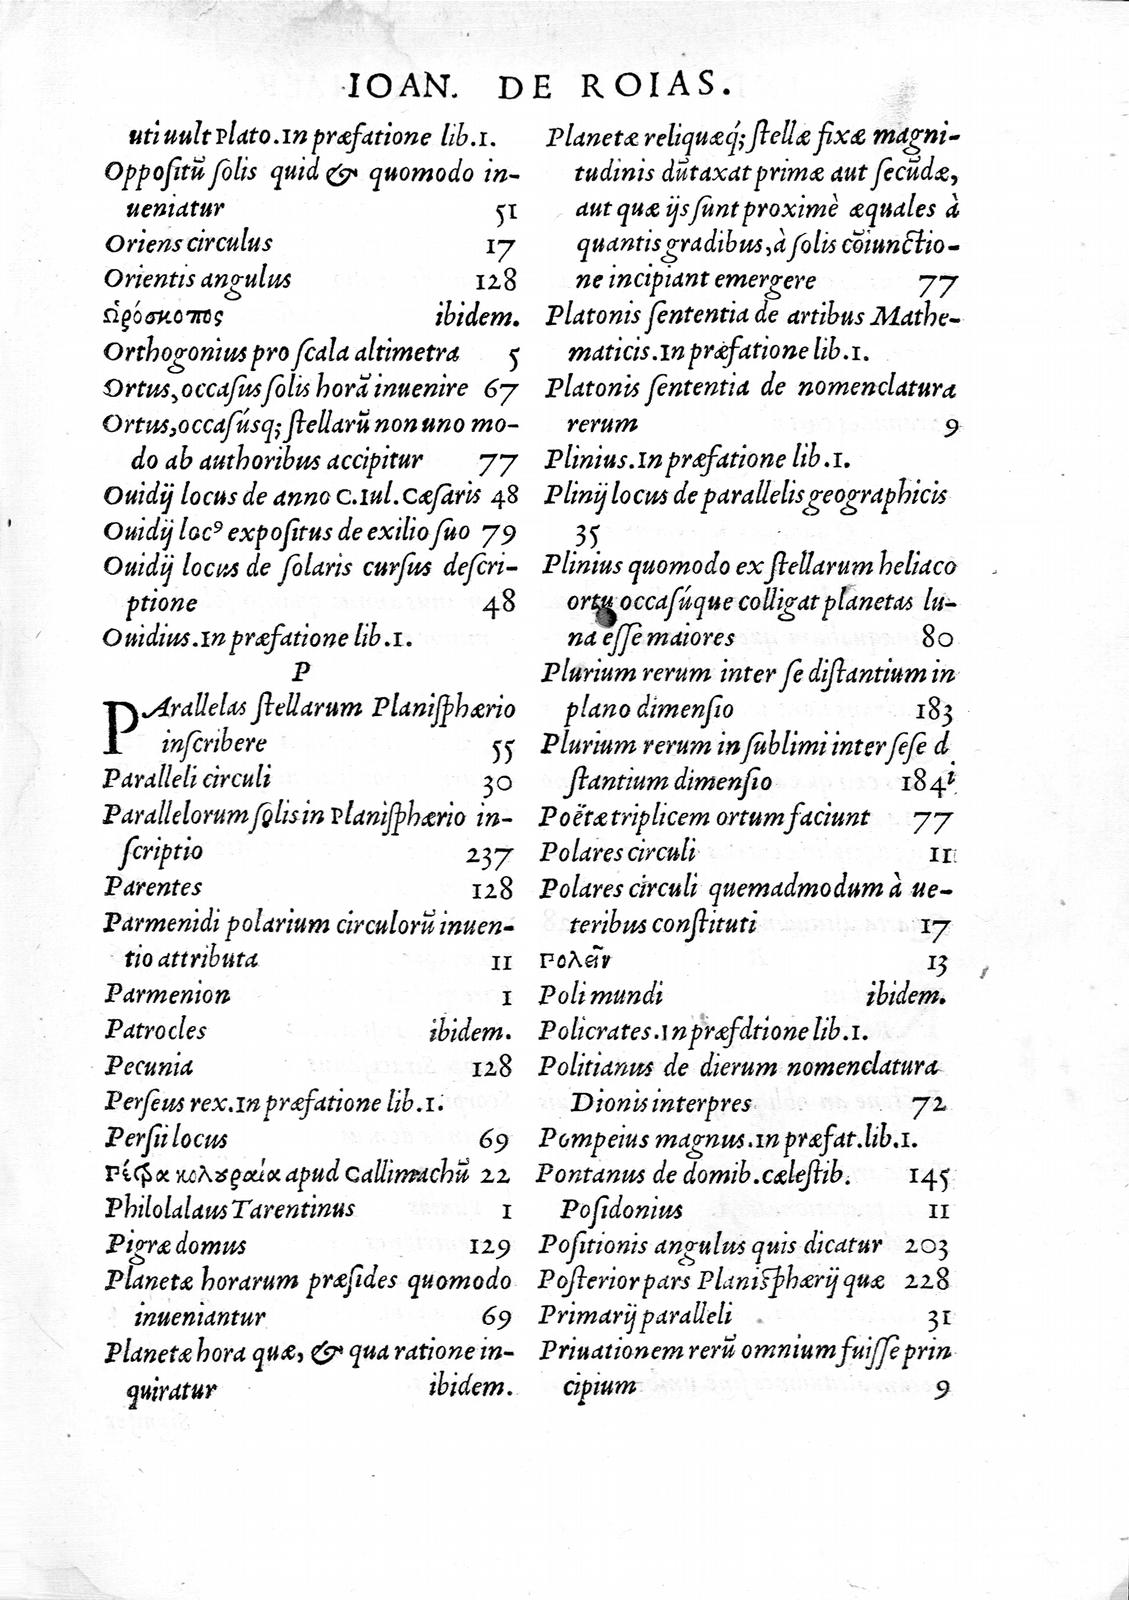 IOAN. DE ROIAS.
uti uult Plato. In præfatione lib. 1.
Oppoſitū ſolis quid & quomodo in-
ueniatur 51
Oriens circulus 17
Orientis angulus 128
Ὡρόσκοπος ibidem.
Orthogonius pro ſcala altimetra 5
Ortus, occaſus ſolis horā inuenire 67
Ortus, occaſúsq; ſtellarū non uno mo-
do ab authoribus accipitur 77
Ouidij locus de anno C. Iul. Cæſaris 48
Ouidij locꝰ expoſitus de exilio ſuo 79
Ouidij locus de ſolaris curſus deſcri-
ptione 48
Ouidius. In præfatione lib. 1.
P
PArallelas ſtellarum Planiſphærio
inſcribere 55
Paralleli circuli 30
Parallelorum ſolis in Planiſphærio in-
ſcriptio 237
Parentes 128
Parmenidi polarium circulorū inuen-
tio attributa 11
Parmenion 1
Patrocles ibidem.
Pecunia 128
Perſeus rex. In præfatione lib. 1.
Perſii locus 69
apud Callimachū 22
Philolalaus Tarentinus 1
Pigræ domus 129
Planetæ horarum præſides quomodo
inueniantur 69
Planetæ hora quæ, & qua ratione in-
quiratur ibidem.
Planetæ reliquæq́; ſtellæ fixæ magni-
tudinis dūtaxat primæ aut ſecūdæ,
aut quæ ijs ſunt proximè æquales à
quantis gradibus, à ſolis cōiunctio-
ne incipiant emergere 77
Platonis ſententia de artibus Mathe-
maticis. In præfatione lib. 1.
Platonis ſententia de nomenclatura
rerum 9
Plinius. In præfatione lib. 1.
Plinij locus de parallelis geographicis
35
Plinius quomodo ex ſtellarum heliaco
ortu occaſúque colligat planetas lu-
na eſſe maiores 80
Plurium rerum inter ſe diſtantium in
plano dimenſio 183
Plurium rerum in ſublimi inter ſeſe d
ſtantium dimenſio 184 i
Poëtæ triplicem ortum faciunt 77
Polares circuli 11
Polares circuli quemadmodum à ue-
teribus conſtituti 17
πολεῖν 13
Poli mundi ibidem.
Policrates. In præfdtione lib. 1.
Politianus de dierum nomenclatura
Dionis interpres 72
Pompeius magnus. In præfat. lib. 1.
Pontanus de domib. cæleſtib. 145
Poſidonius 11
Poſitionis angulus quis dicatur 203
Poſterior pars Planiſphærij quæ 228
Primarij paralleli 31
Priuationem rerū omnium fuiſſe prin
cipium 9